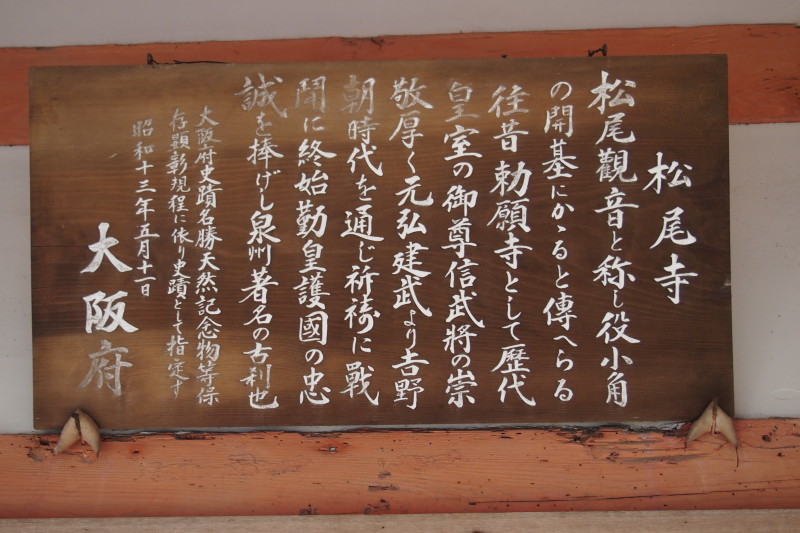 松尾寺
松尾觀音と称し役小角
の開基にかゝると傳へらる
往昔勅願寺として歴代
皇室の御尊信武將の崇
敬厚く元弘建武より吉野
朝時代を通し祈祷に戰
鬪に終始勤皇護國の忠
誠を捧げし泉州著名の古刹也
大阪府史蹟名勝天然記念物等保
存顕彰規程に依り史蹟として指定す
昭和十三年五月十一日
大阪府